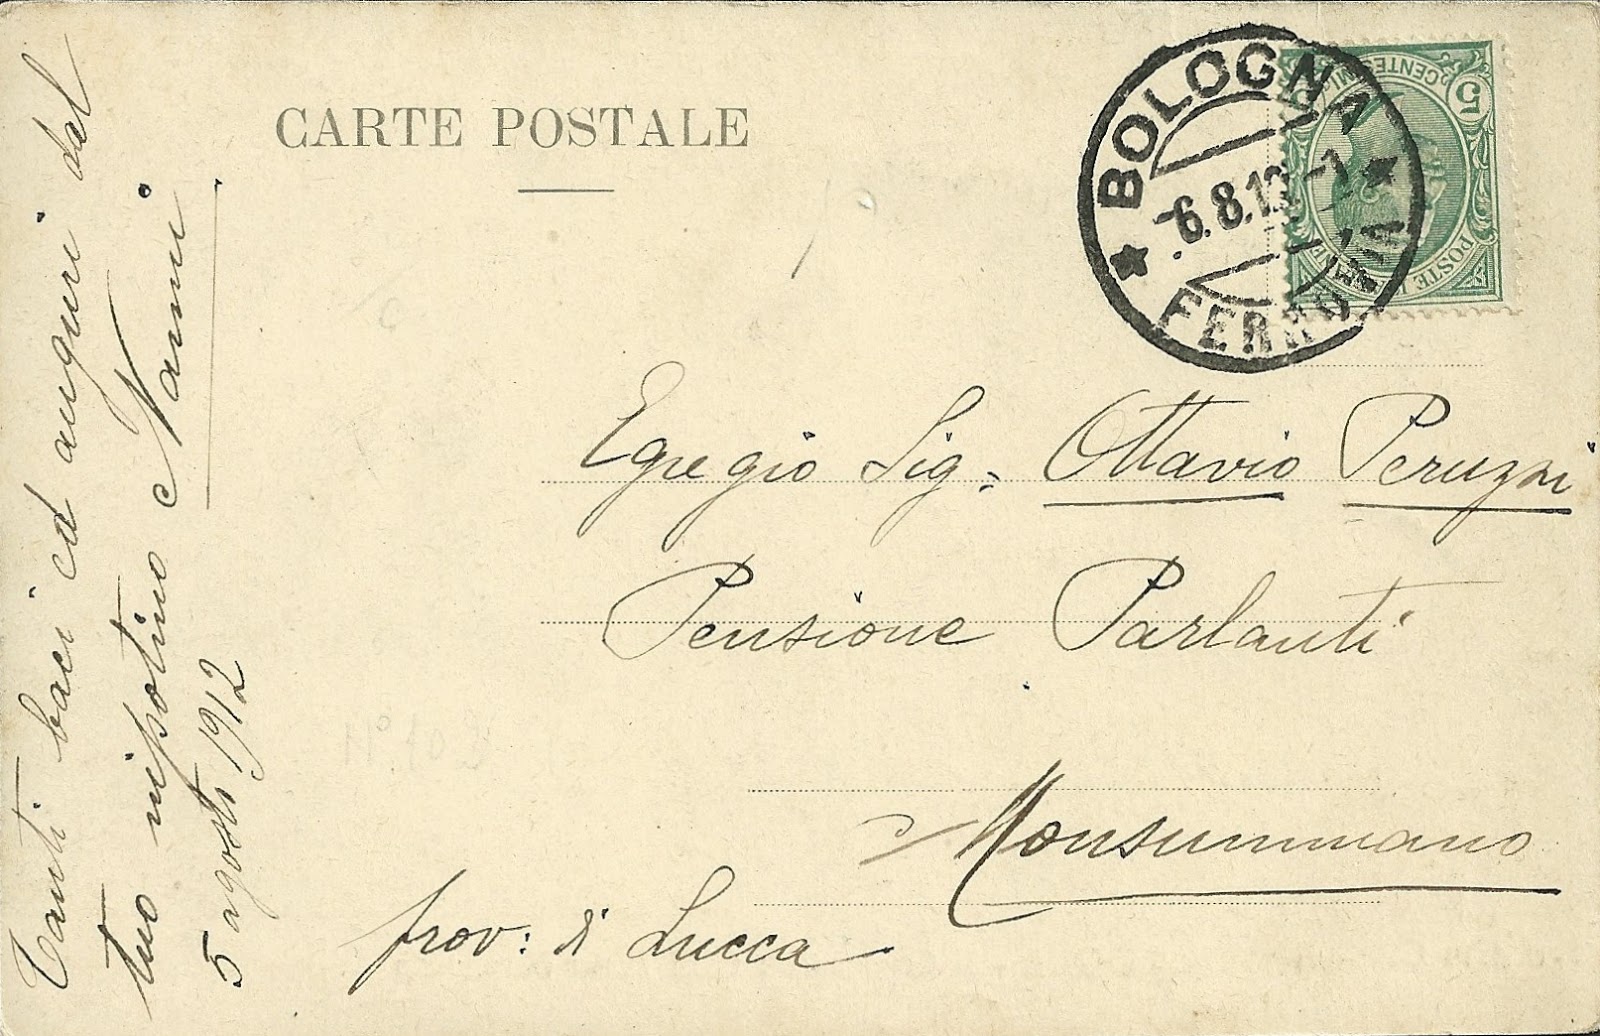 CARTE POSTALE
BOLOGNA
6.8.12
FERROVIA
5 CENTESIMI
POSTE
Tanti baci ed auguri dal
tuo nipotino Nanni
5 agosto 1912
Egregio Sig= Ottavio Peruzzi
Pensione Parlanti
Monsummano
prov: di Lucca